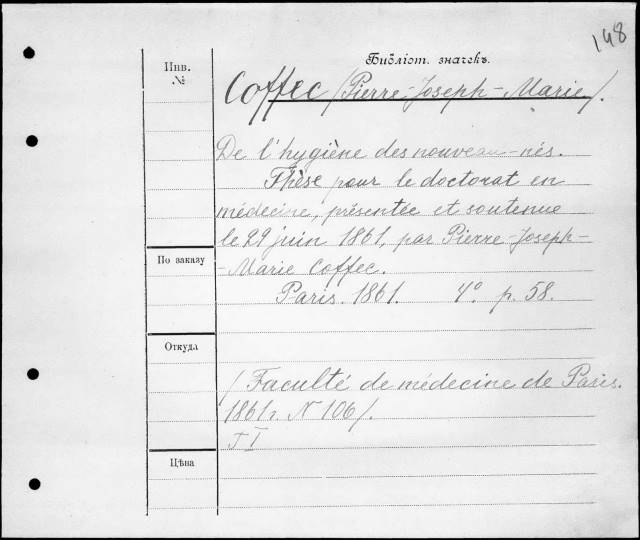 148
Библіот. значекъ.
Инв.
№
Coffec /Pierre-Joseph-Marie/.
De l'hygiène des nouveau-nés.
Thèse pour le doctorat en
médecine, présentée et soutenue
le 29 juin 1861, par Pierre-Joseph-
-Marie Coffec.
По заказу
Paris. 1861. 4º. p. 58.
Откуда
/Faculté de médecine de Paris.
1861г. N 106/.
T I
Цѣна